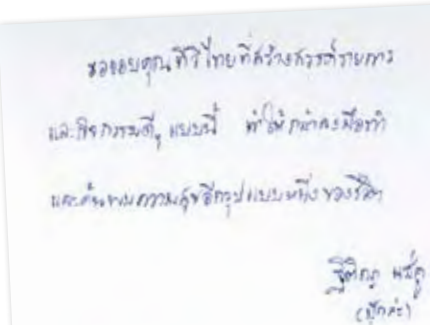 ขอขอบคุณทีวีไทยที่สร้างสรรค์รายการ
และกิจกรรมดีๆ แบบนี้ ทำให้กล้าลงมือทำ
และค้นพบความสุขอีกรูปแบบหนึ่งของชีวิต